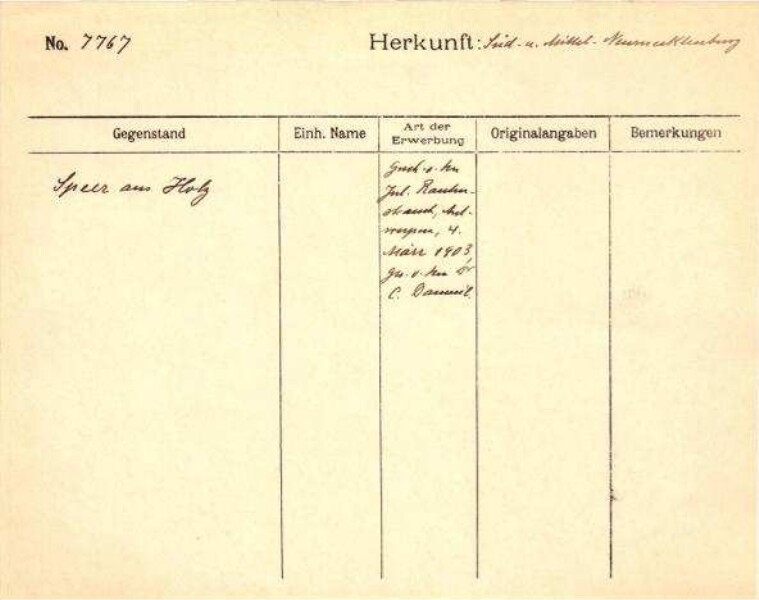 No. 7767
Herkunft: Süd- u. Mittel- Neumecklenburg
Gegenstand
Einh. Name
Art der
Erwerbung
Originalangaben
Bemerkungen
Speer aus Holz
Gesch. v. Hn
Jul. Rauten-
strauch, Ant-
werpen, 4.
März 1903,
ges. v. Hn Dr
C. Dammil.